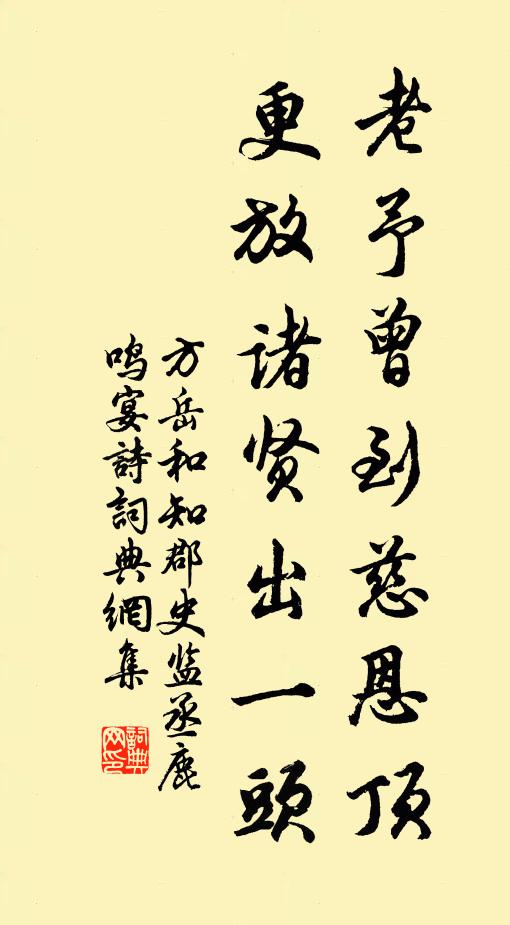 老予曾到慈恩顶
更放诸贤出一頭
方岳和知郡史监丞鹿
鸣宴詩詞典網集
詞典
网印